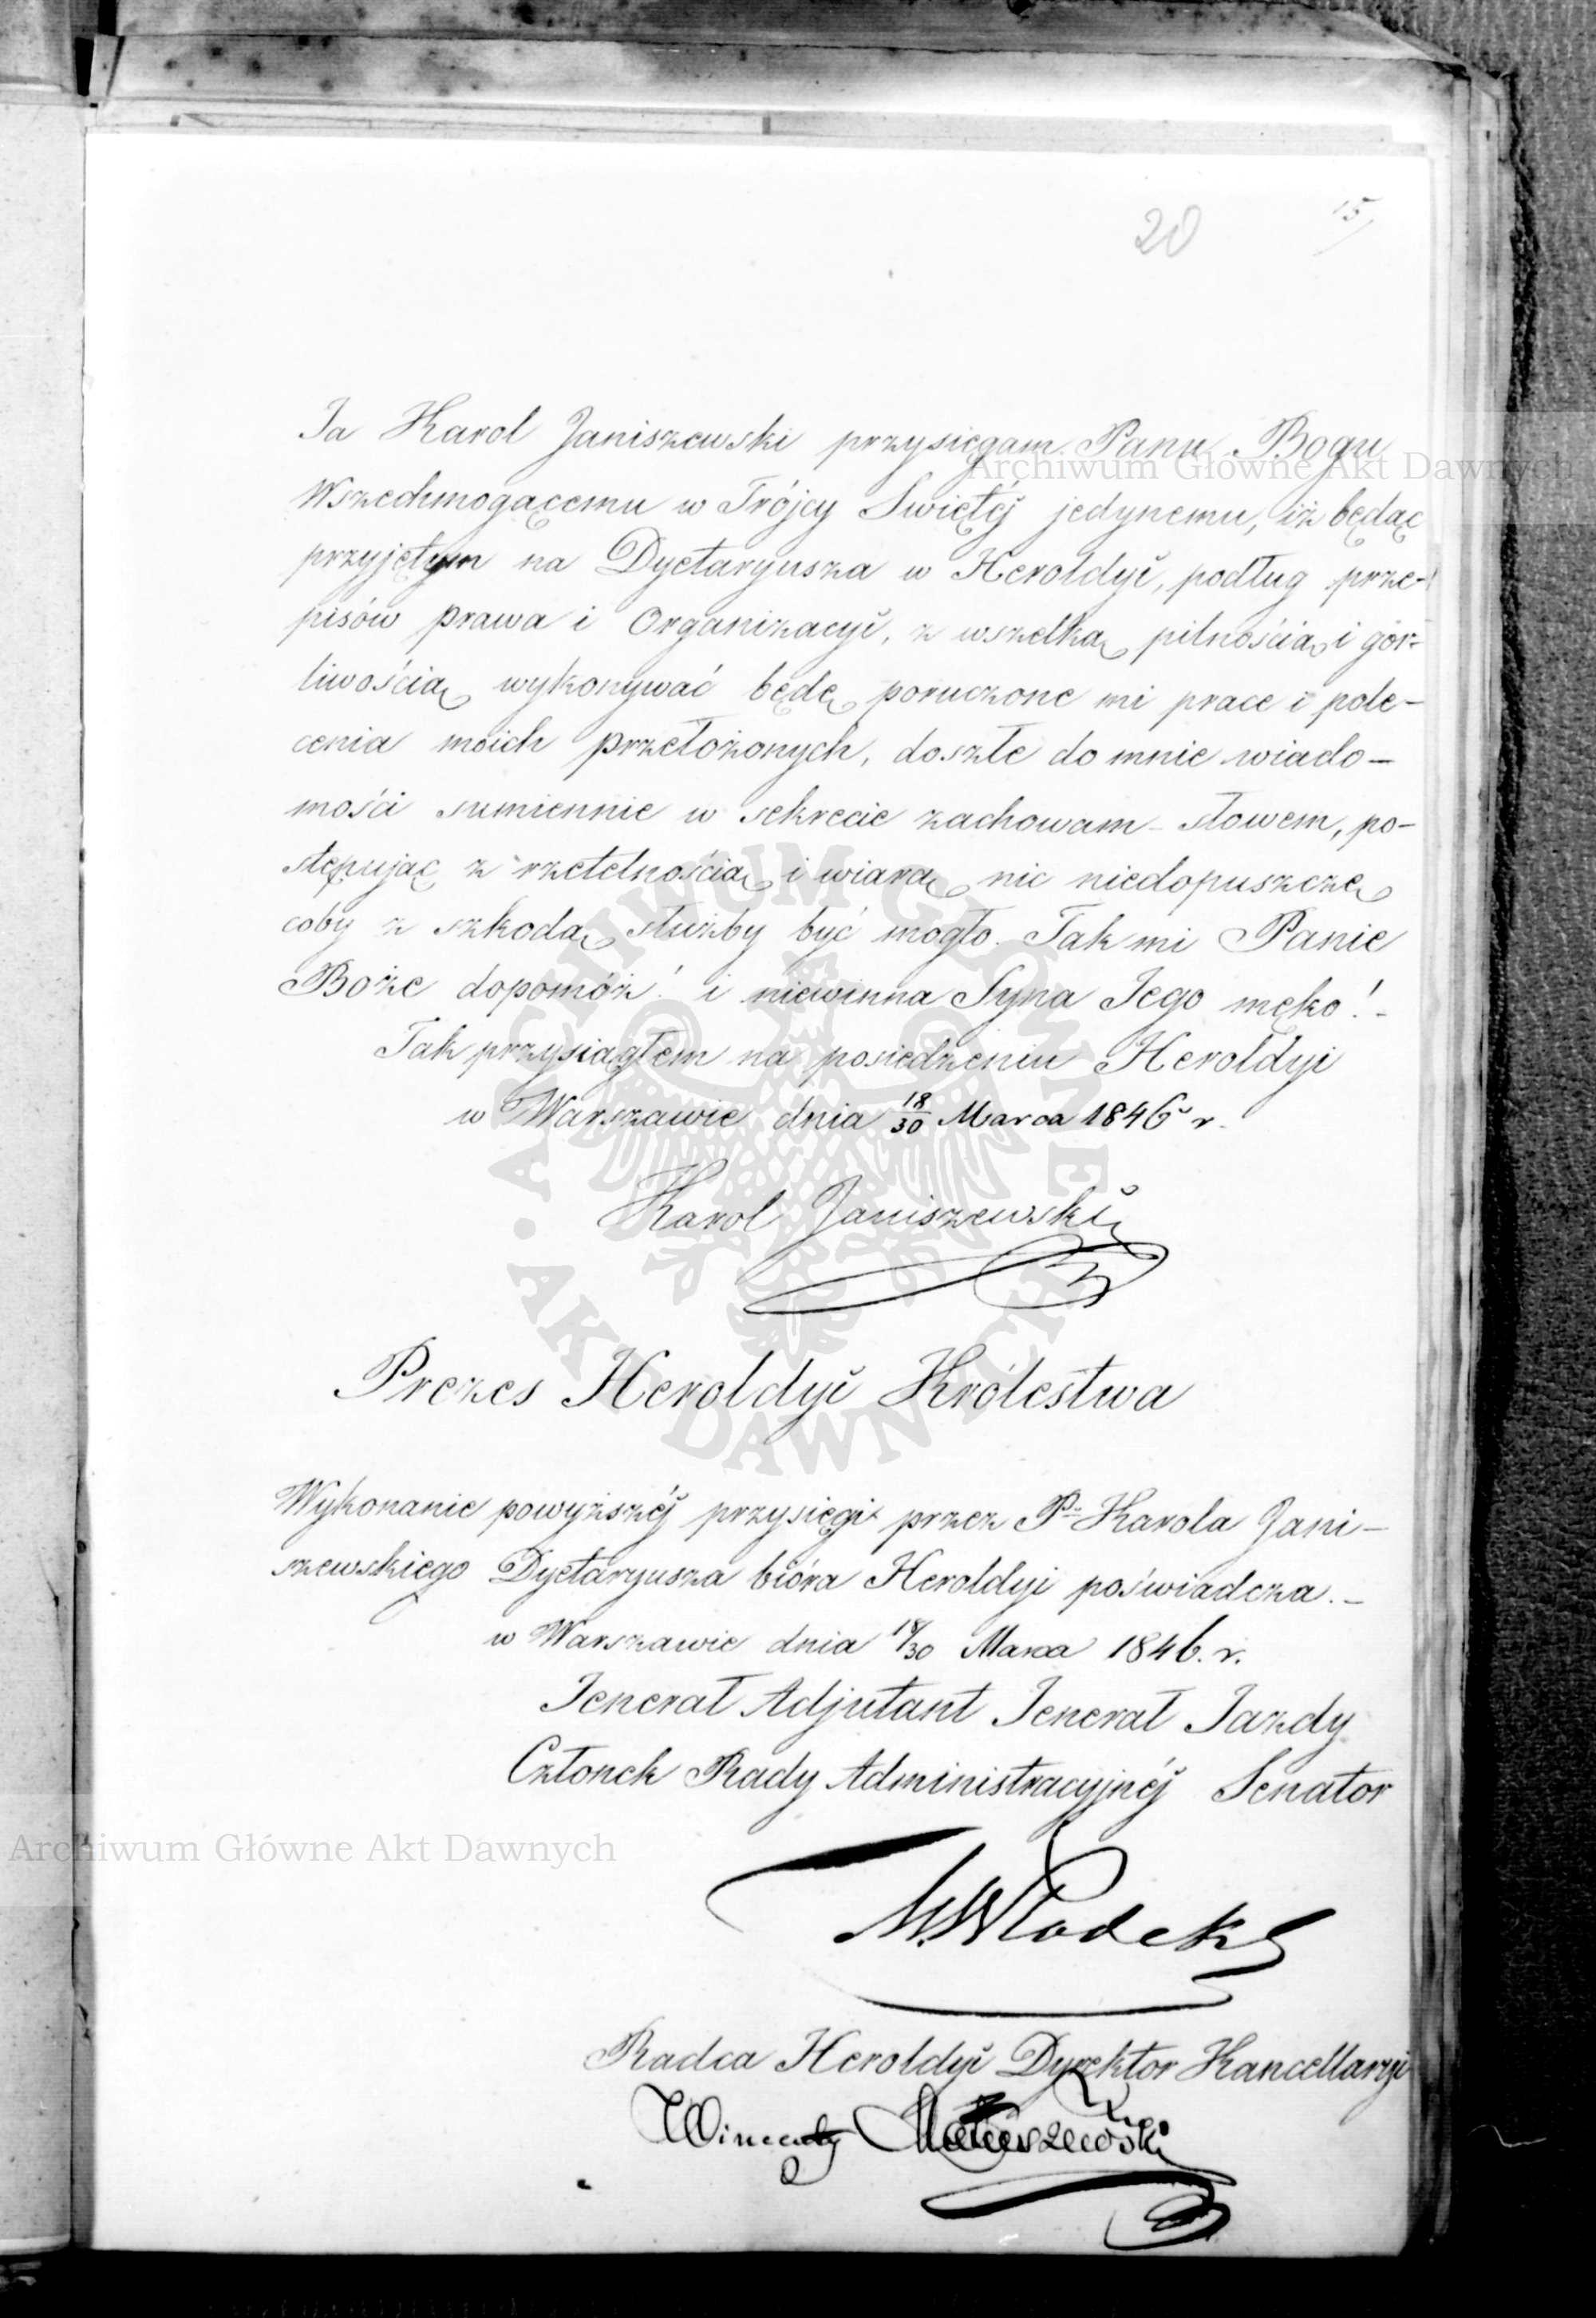 20
15
Ja Karol Janiszewski przysięgam Panu Bogu
Wszechmogącemu w Trójcy Swiętéj jedynemu, iż będąc
przyjętym na Dyetaryusza w Heroldyi, podług prze-
pisów prawa i Organizacyi, z wszelką pilnością i gor-
liwością wykonywać będę poruczone mi prace i pole-
cenia moich przełożonych, doszłe do mnie wiado-
mości sumiennie w sekrecie zachowam – słowem, po-
stępując z rzetelnością i wiarą nic niedopuszczę
coby z szkodą służby być mogło. Tak mi Panie
Boże dopomóż! i niewinna Syna Jego męko! –
Tak przysiągłem na posiedzeniu Heroldyi
w Warszawie dnia 18/30 Marca 1846 r.
Karol Janiszewski
Prezes Heroldyi Królestwa
Wykonanie powyższéj przysięgi przez Pa Karola Jani-
szewskiego Dyetaryusza bióra Heroldyi poświadcza. –
w Warszawie dnia 18/30 Marca 1846. r.
Jenerał Adjutant Jenerał Jazdy
Członek Rady Administracyjnéj Senator
Radca Heroldyi Dyrektor Kancellaryi
Wincenty Matuszewski
Archiwum Główne Akt Dawnych
ARCHIWUM GŁÓWNE AKT DAWNYCH
Archiwum Główne Akt Dawnych